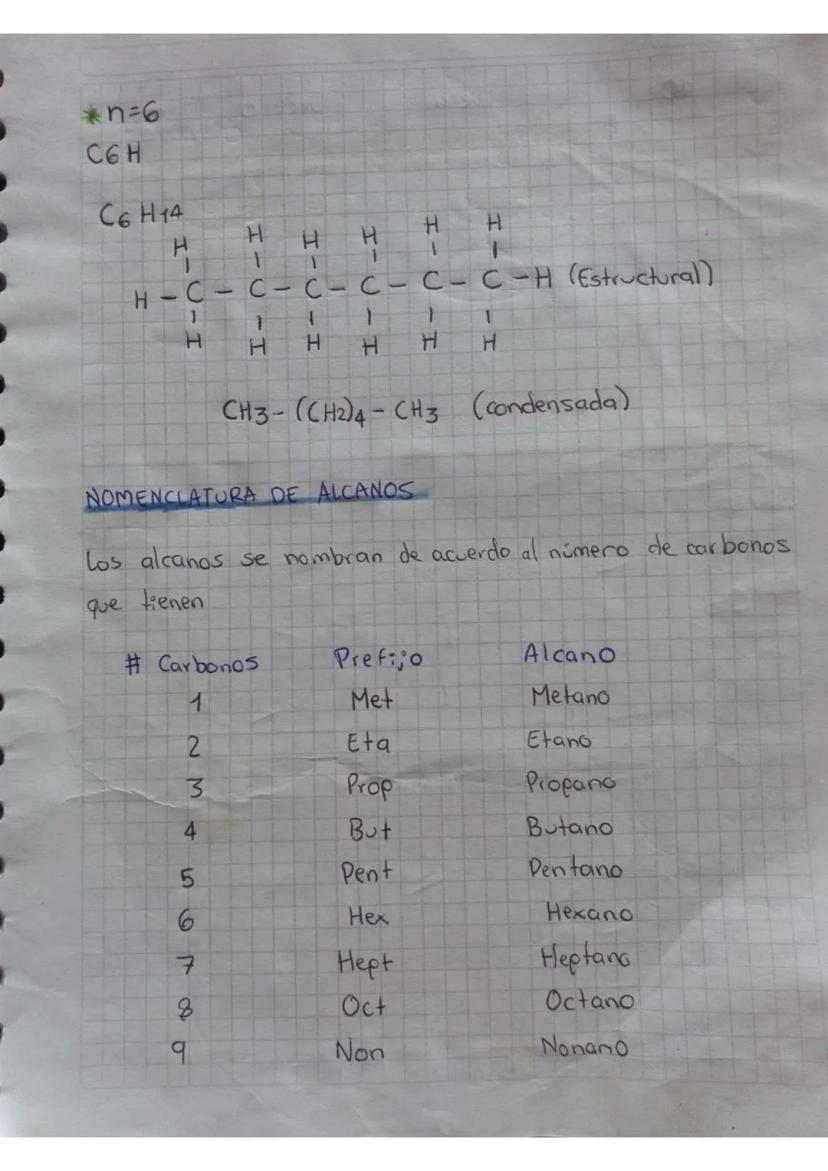 *n=6
C6H
C6H14
H H H H H H
H-C-C-C-C-C-C-H (Estructural)
H H H H H H
CH3-(CH2)4-CH3 (condensada)
NOMENCLATURA DE ALCANOS
Los alcanos se nombran de acuerdo al número de carbonos
que tienen
# Carbonos Prefijo Alcano
1 Met Metano
2 Eta Etano
3 Prop Propano
4 But Butano
5 Pent Pentano
6 Hex Hexano
7 Hept Heptano
8 Oct Octano
9 Non Nonano